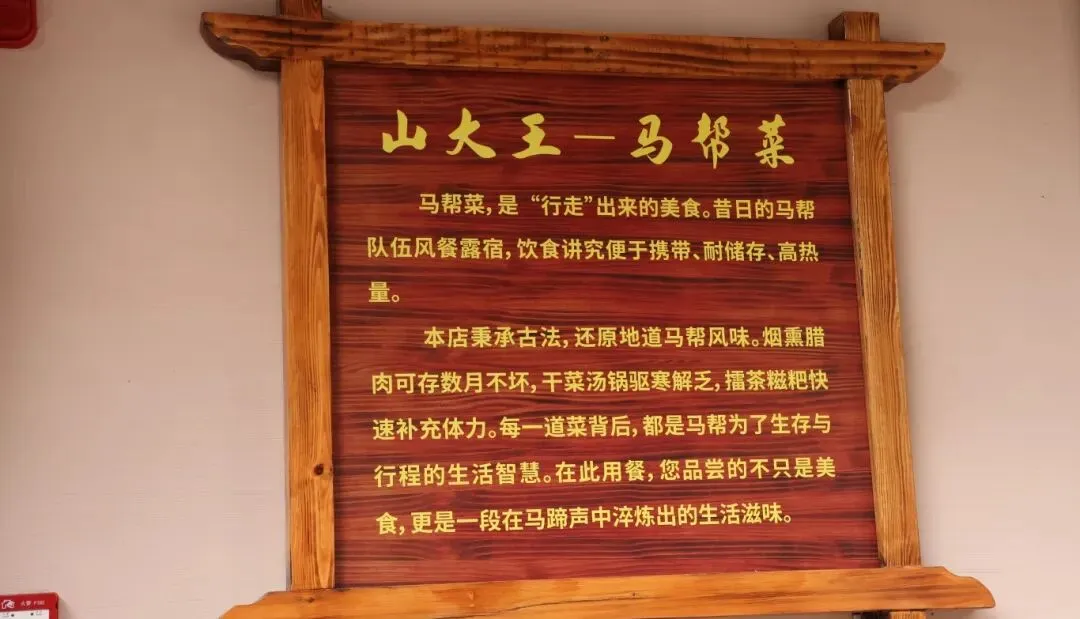 山大王—马帮菜
马帮菜，是“行走”出来的美食。昔日的马帮
队伍风餐露宿，饮食讲究便于携带、耐储存、高热
量。
本店秉承古法，还原地道马帮风味。烟熏腊
肉可存数月不坏，干菜汤锅驱寒解乏，擂茶糍粑快
速补充体力。每一道菜背后，都是马帮为了生存与
行程的生活智慧。在此用餐，您品尝的不只是美
食，更是一段在马蹄声中淬炼出的生活滋味。